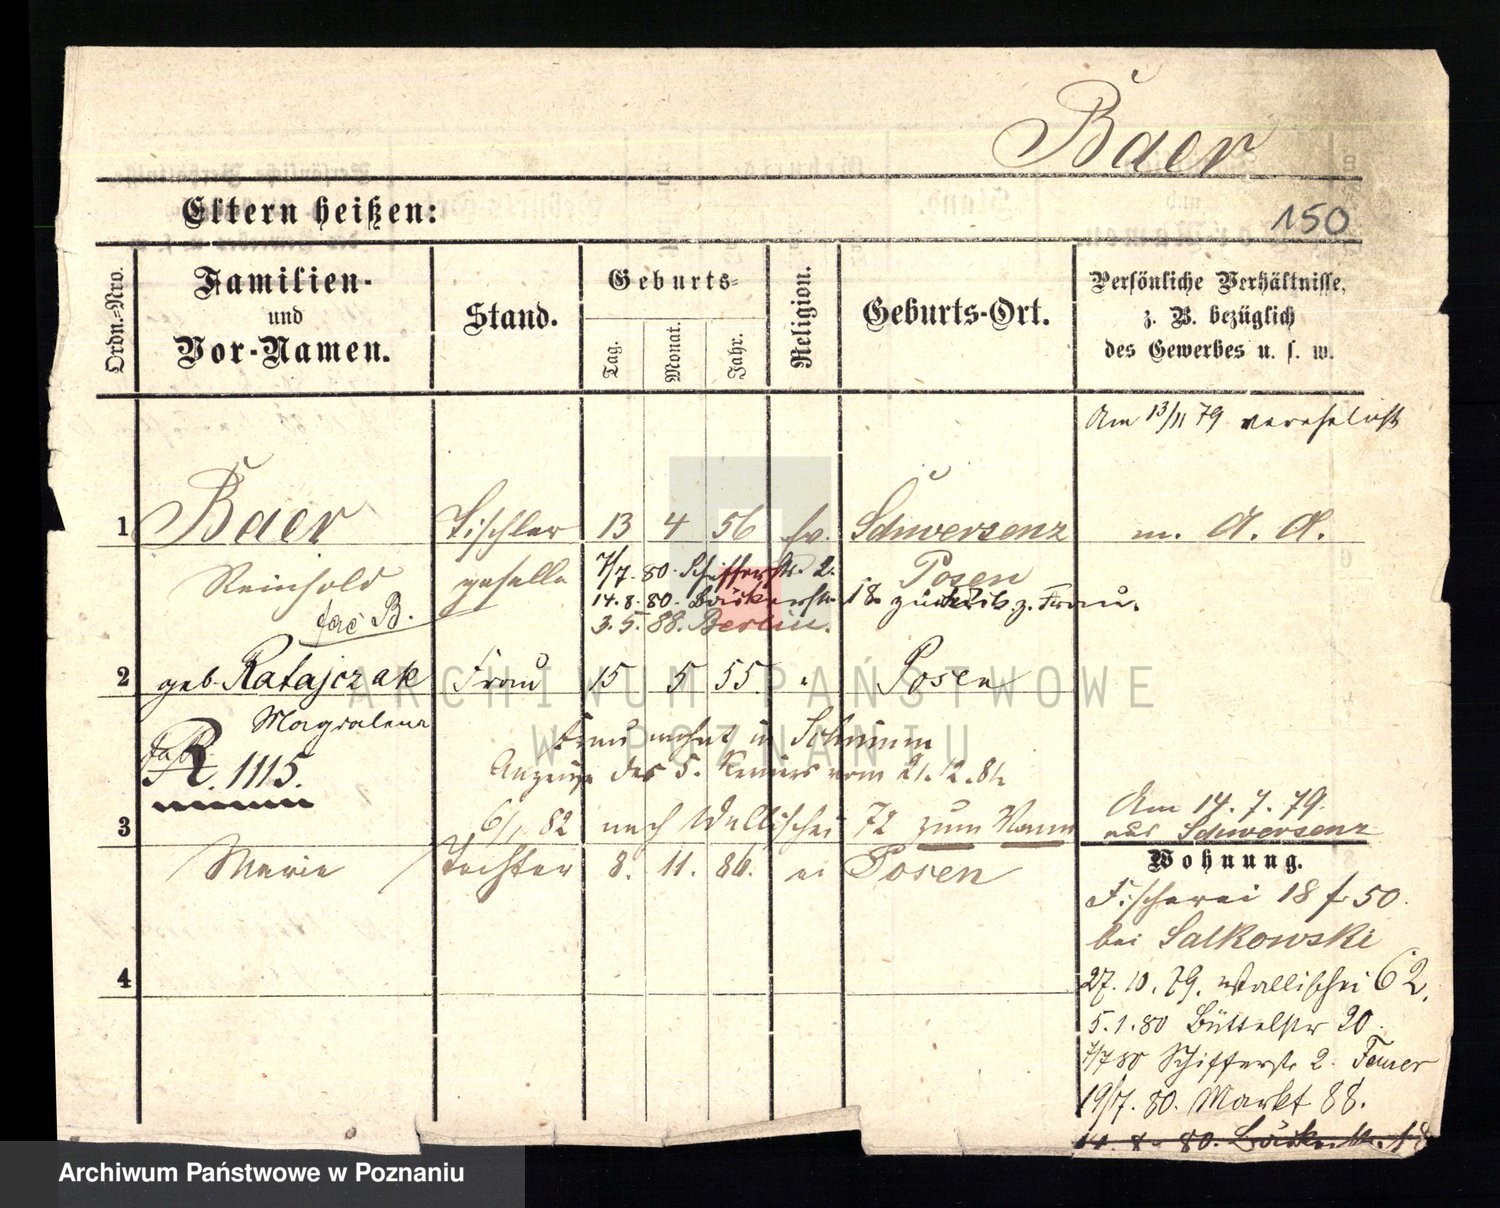 Baer
Eltern heißen:
150
Ordn.-Nro.
Familien-
und
Vor-Namen.
Stand.
Geburts-
Tag.
Monat.
Jahr.
Religion.
Geburts-Ort.
Persönliche Verhältnisse,
z. B. bezüglich
des Gewerbes u. s. w.
Am 13/11 79 verehelicht
1 Baer Tischler 13 4 56 ev. Schwersenz m. A. A.
Reinhold geselle 7/7. 80. Schifferstr. 2. Posen
14. 8. 80. Bäckerstr. 18. zurück z. Frau.
3. 5. 88. Berlin.
2 geb. Ratajczak Frau 15 5 55. " Posen
Magdalena
R. 1115.
Frau wohnt in Schrimm
Anzeige des 5. Reviers vom 21. 12. 81.
3 6/1 82 nach Wallischei 72 zum Mann
Am 14. 7. 79.
aus Schwersenz
Marie Tochter 8. 11. 86. Posen
Wohnung.
Fischerei 18 50.
bei Salkowski
27. 10. 79. Wallischei 62.
5. 1. 80 Büttelstr 20.
7/7 80 Schifferstr 2.
19/7. 80. Markt 88.
4
14. 8. 80. Bäckerstr. 18
ARCHIWUM PAŃSTWOWE
W POZNANIU
Archiwum Państwowe w Poznaniu